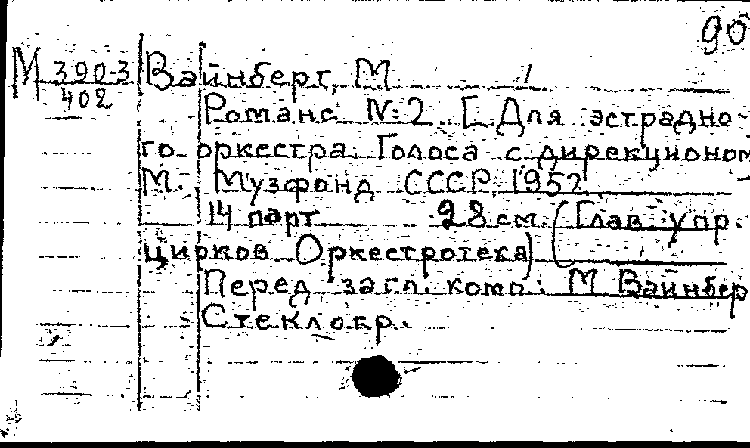 90
М 390-3 Вайнберг, М
402 Романс № 2. [Для эстрадно-
го оркестра. Голоса с дирекционом
М., Музфонд СССР, 1952
14 парт 28 см. (Глав. упр.
цирков Оркестротека)
Перед загл. комп.: М Вайнбер
Стеклогр.